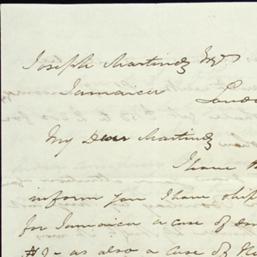 Joseph Martindz Esqr
Jamaica
My Dear Martindz
I have
inform you I have ship
for Jamaica a case of
# 1 - as also a case of